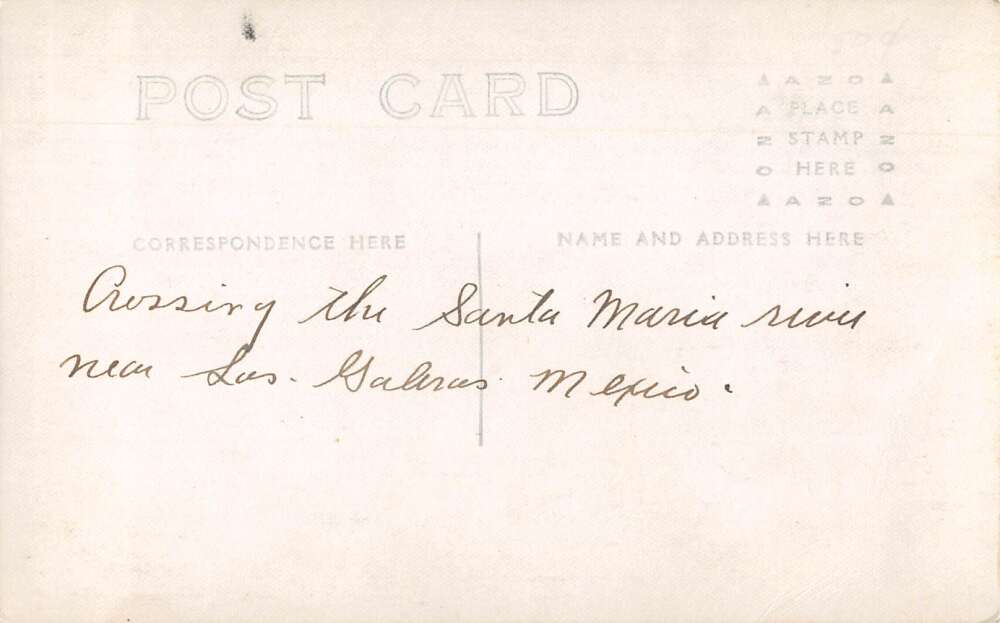 POST CARD
▲ A Z O ▲
A PLACE A
Z STAMP Z
O HERE O
▲ A Z O ▲
CORRESPONDENCE HERE
NAME AND ADDRESS HERE
Crossing the Santa Maria river
near Las. Galeras Mexico.